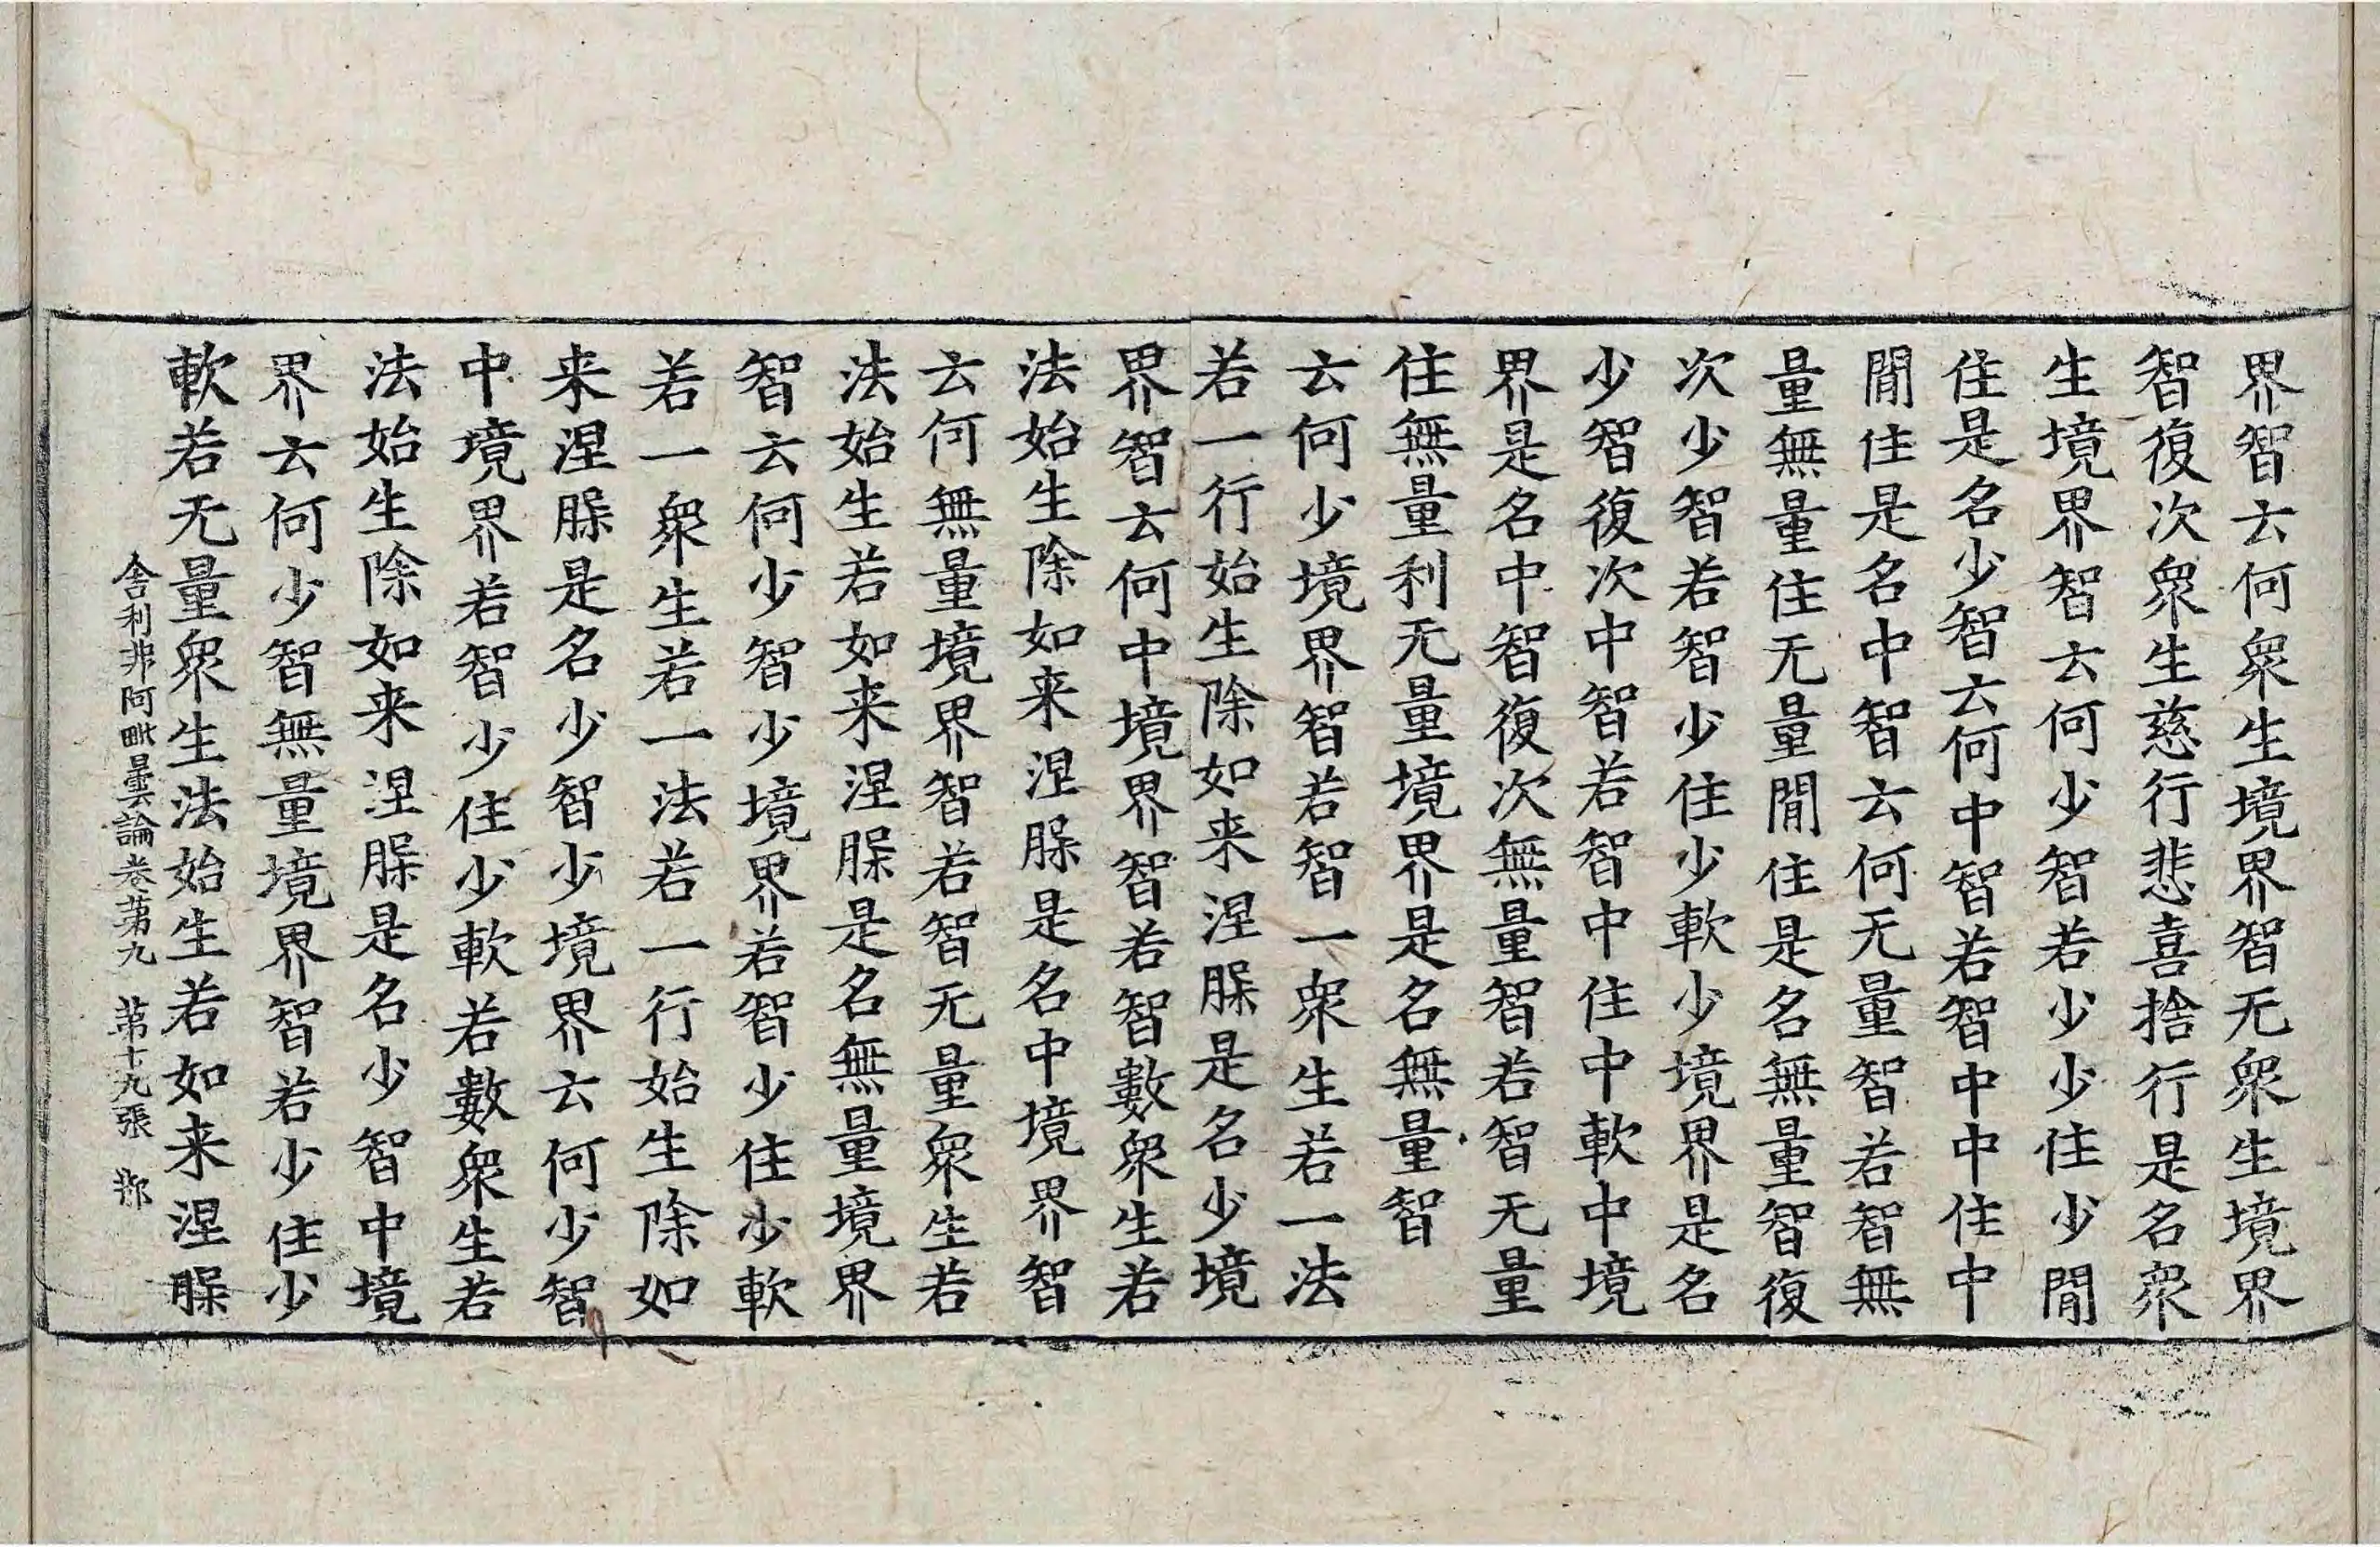 界智云何衆生境界智无衆生境界
智復次衆生慈行悲喜捨行是名衆
生境界智云何少智若少少住少閒
住是名少智云何中智若智中中住中
閒住是名中智云何无量智若智無
量無量住无量閒住是名無量智復
次少智若智少住少軟少境界是名
少智復次中智若智中住中軟中境
界是名中智復次無量智若智无量
住無量利无量境界是名無量智
云何少境界智若智一衆生若一法
若一行始生除如来涅䏶是名少境
界智云何中境界智若智數衆生若
法始生除如来涅䏶是名中境界智
云何無量境界智若智无量衆生若
法始生若如来涅䏶是名無量境界
智云何少智少境界若智少住少軟
若一衆生若一法若一行始生除如
来涅䏶是名少智少境界云何少智
中境界若智少住少軟若數衆生若
法始生除如来涅䏶是名少智中境
界云何少智無量境界智若少住少
軟若无量衆生法始生若如来涅䏶
舎利非阿毗曇論卷苐九　苐十九張